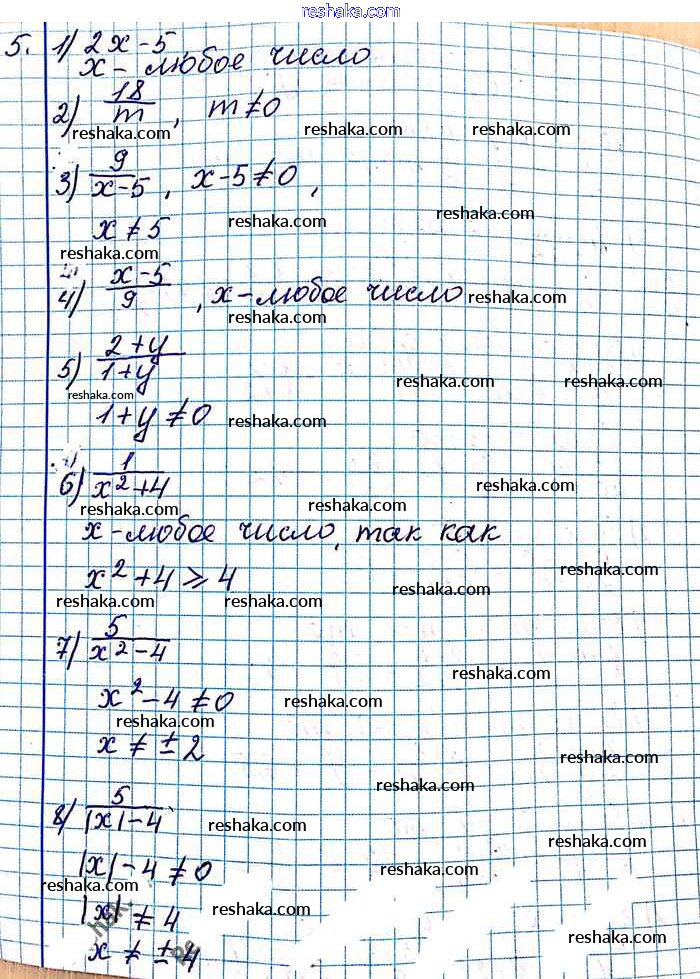 reshaka.com
5. 1) 2x-5,
x - любое число
2) 18/m, m≠0
reshaka.com reshaka.com reshaka.com
3) 9/x-5, x-5≠0,
reshaka.com reshaka.com
x≠5
reshaka.com
4) x-5/9, x-любое число reshaka.com
reshaka.com
5) 2+y/1+y
reshaka.com reshaka.com reshaka.com
1+y≠0 reshaka.com
6) 1/x²+4
reshaka.com
reshaka.com reshaka.com
x-любое число, так как
reshaka.com
x²+4⩾4 reshaka.com
reshaka.com reshaka.com reshaka.com
7) 5/x²-4
reshaka.com
x²-4≠0 reshaka.com
reshaka.com reshaka.com
x≠±2
reshaka.com
8) 5/|x|-4 reshaka.com
|x|-4≠0 reshaka.com
reshaka.com
|x|≠4 reshaka.com
x≠±4 reshaka.com